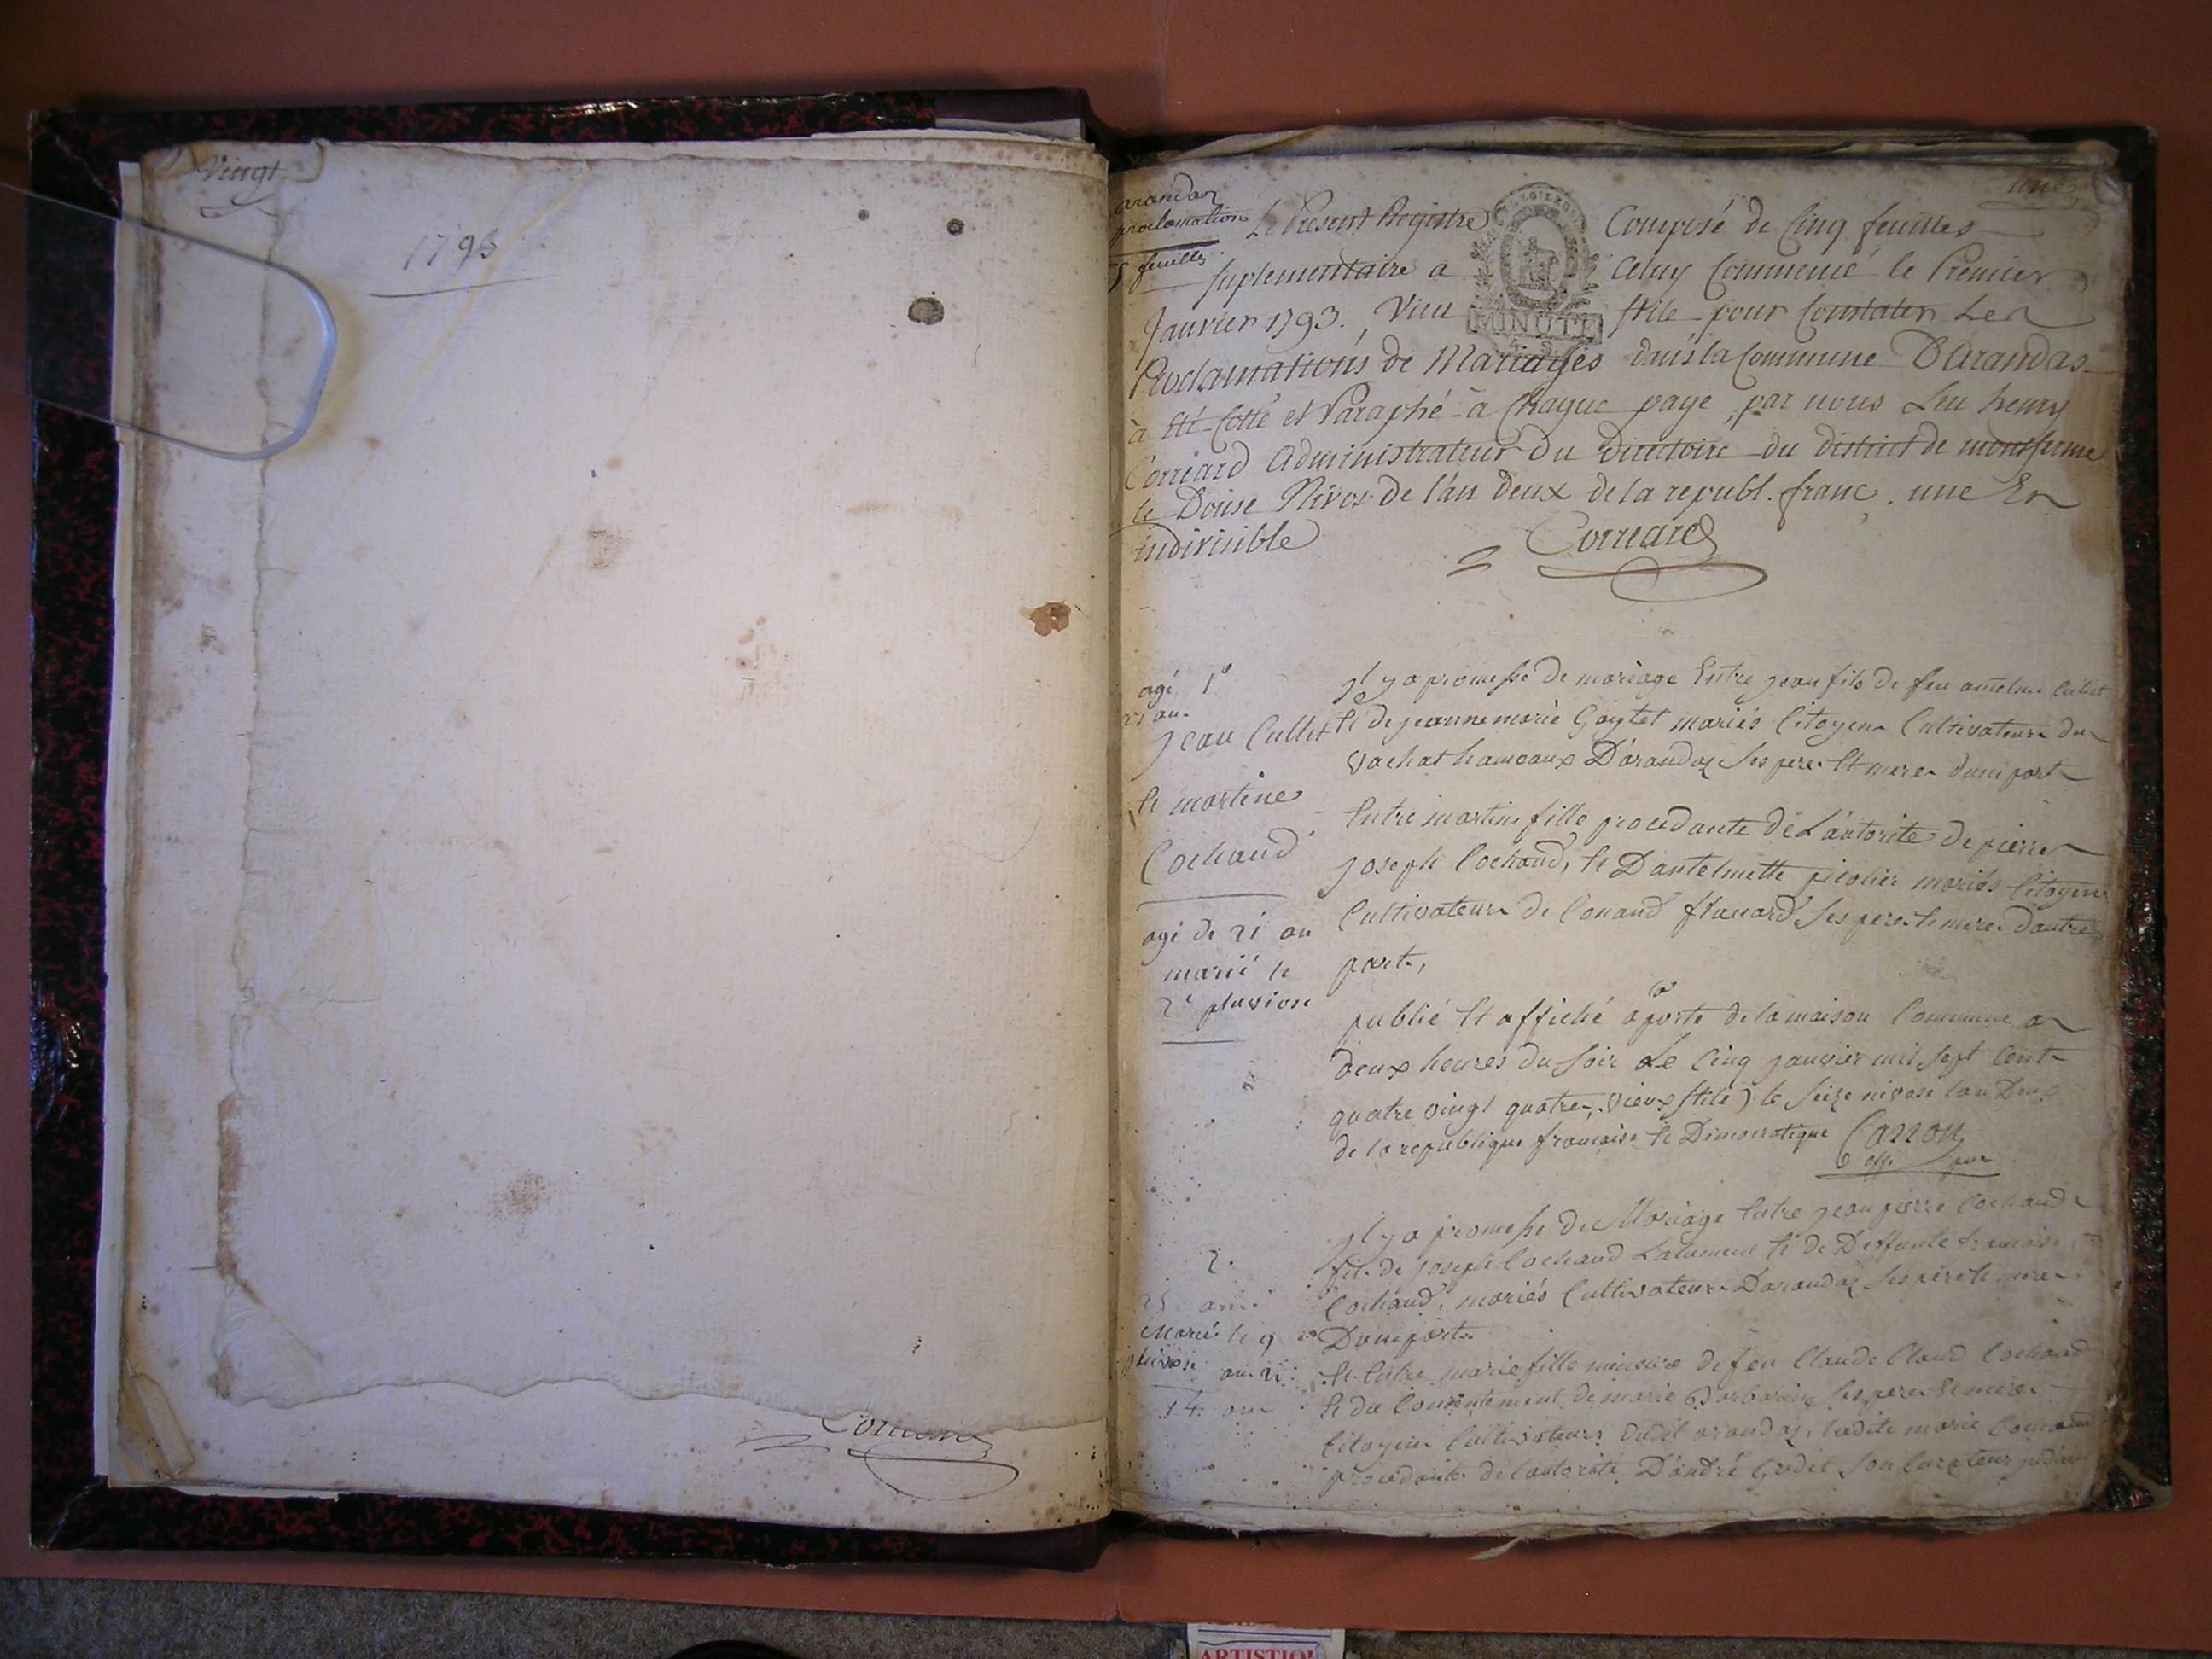 Vingt
1793
Correard
une
arandaz
proclamation
5 feuilles
Le Present Registre Composé de Cinq feuilles
suplementaire a Celuy Commencé le Premier
MINUTE
Janvier 1793. Vieu stile pour Constater Les
Proclamations de Mariages dans la Commune D'Arandas.
à été Cotté et Paraphé à Chaque page, par nous Leu henry
Correard Administrateur du Directoire du District de montferme
le Douse Nivos de l'an deux de la republ. franc. une Et
indivisible
Correard
agé 1°
21 an
Jean Cullet
et martine
Cochaud
agé de 21 an
marié le
2e pluviose
jl y a promesse de mariage Entre jean fils de feu antelme Cullet
Et de jeanne marie Goytet mariés Citoyens Cultivateurs du
vachat hameaux D'arandaz ses pere Et mere d'une part
Entre martine fille procedante de L'autorite de pierre
joseph Cochaud, Et D'antelmette picolier mariés Citoyens
Cultivateurs de Conand ses pere Et mere d'autre
part,
publié Et affiché a porte de la maison Commune a
la
deux heures du soir Le Cinq janvier mil sept Cent
quatre vingt quatre, vieux stile) le seize nivose l'an Deux
de la republique francaise Et Democratique Carron
off. pu
2.
25 ans
Marié le 9
pluviose an 2
14 ans
jl y a promesse de Mariage Entre jean pierre Cochaud
fils de joseph Cochaud Et de Deffunte francoise
Cochaud, mariés Cultivateurs D'arandaz ses pere Et mere
D'une part
Et Entre marie fille mineure de feu Claude Cochaud
Et du Consentement de marie Barbarin ses pere Et mere
Citoyens Cultivateurs dudit arandaz, ladite marie Cochaud
procedante de l'autorité D'andré Gudet son Curateur
ARTISTIQ